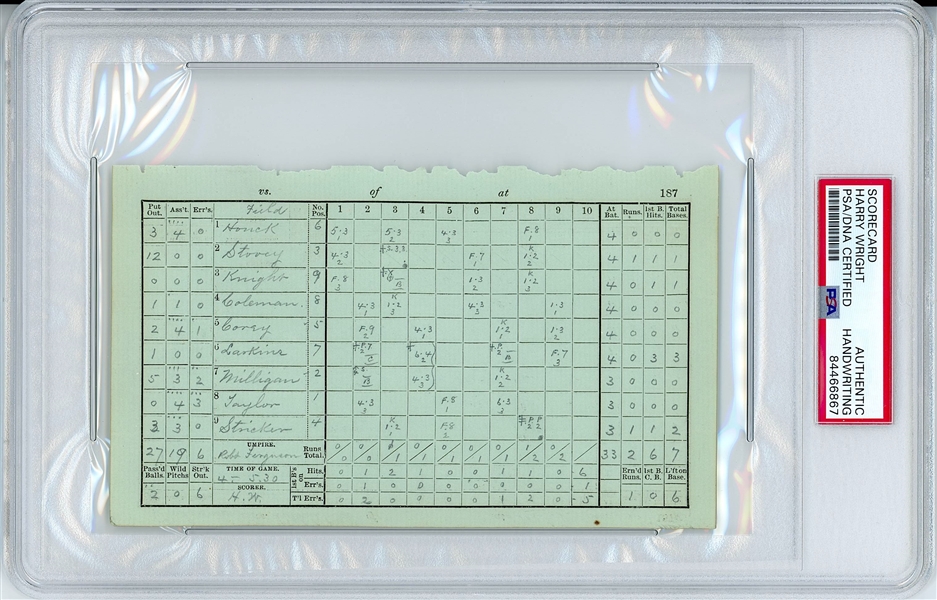 vs. of at 187
Put Out. Ass't. Err's. Field No. Pos. 1 2 3 4 5 6 7 8 9 10 At Bat. Runs. 1st B. Hits. Total Bases.
3 4 0 1 Houck 6 5-3 1 5-3 2 4-3 3 F.8 1 4 0 0 0
12 0 0 2 Stovey 3 4-3 2 F.7 1 K 1-2 2 4 1 1 1
0 0 0 3 Knight 9 F.8 3 B 1-3 2 K 1-2 3 4 0 1 1
1 1 0 4 Coleman. 8 4-3 1 K 1-2 3 4-3 3 1-3 1 4 0 0 0
2 4 1 5 Corey 5 F.9 2 4-3 1 K 1-2 1 1-3 2 4 0 0 0
1 0 0 6 Larkins 7 C 6-4 2 B F.7 3 4 0 3 3
5 3 2 7 Milligan 2 B 4-3 3 K 1-2 2 3 0 0 0
0 4 3 8 Taylor 1 4-3 3 F.8 1 6-3 3 3 0 0 0
3 3 0 9 Stricker 4 K 1-2 1 F.8 2 3 1 1 2
27 19 6 UMPIRE. Robt Ferguson Runs Total. 33 2 6 7
Pass'd Balls. Wild Pitchs Str'k Out. TIME OF GAME. 4 – 5.30 1st B's on Hits. 0 1 2 1 0 0 1 0 1 6 Ern'd Runs. 1st B. C. B. L'f't on Base.
SCORER. Err's. 0 1 0 0 0 0 0 0 0 1
2 0 6 H.W. T'l Err's. 0 2 0 0 0 0 1 2 0 5 1 0 6
SCORECARD
HARRY WRIGHT
PSA/DNA CERTIFIED
AUTHENTIC
HANDWRITING
84466867
PSA